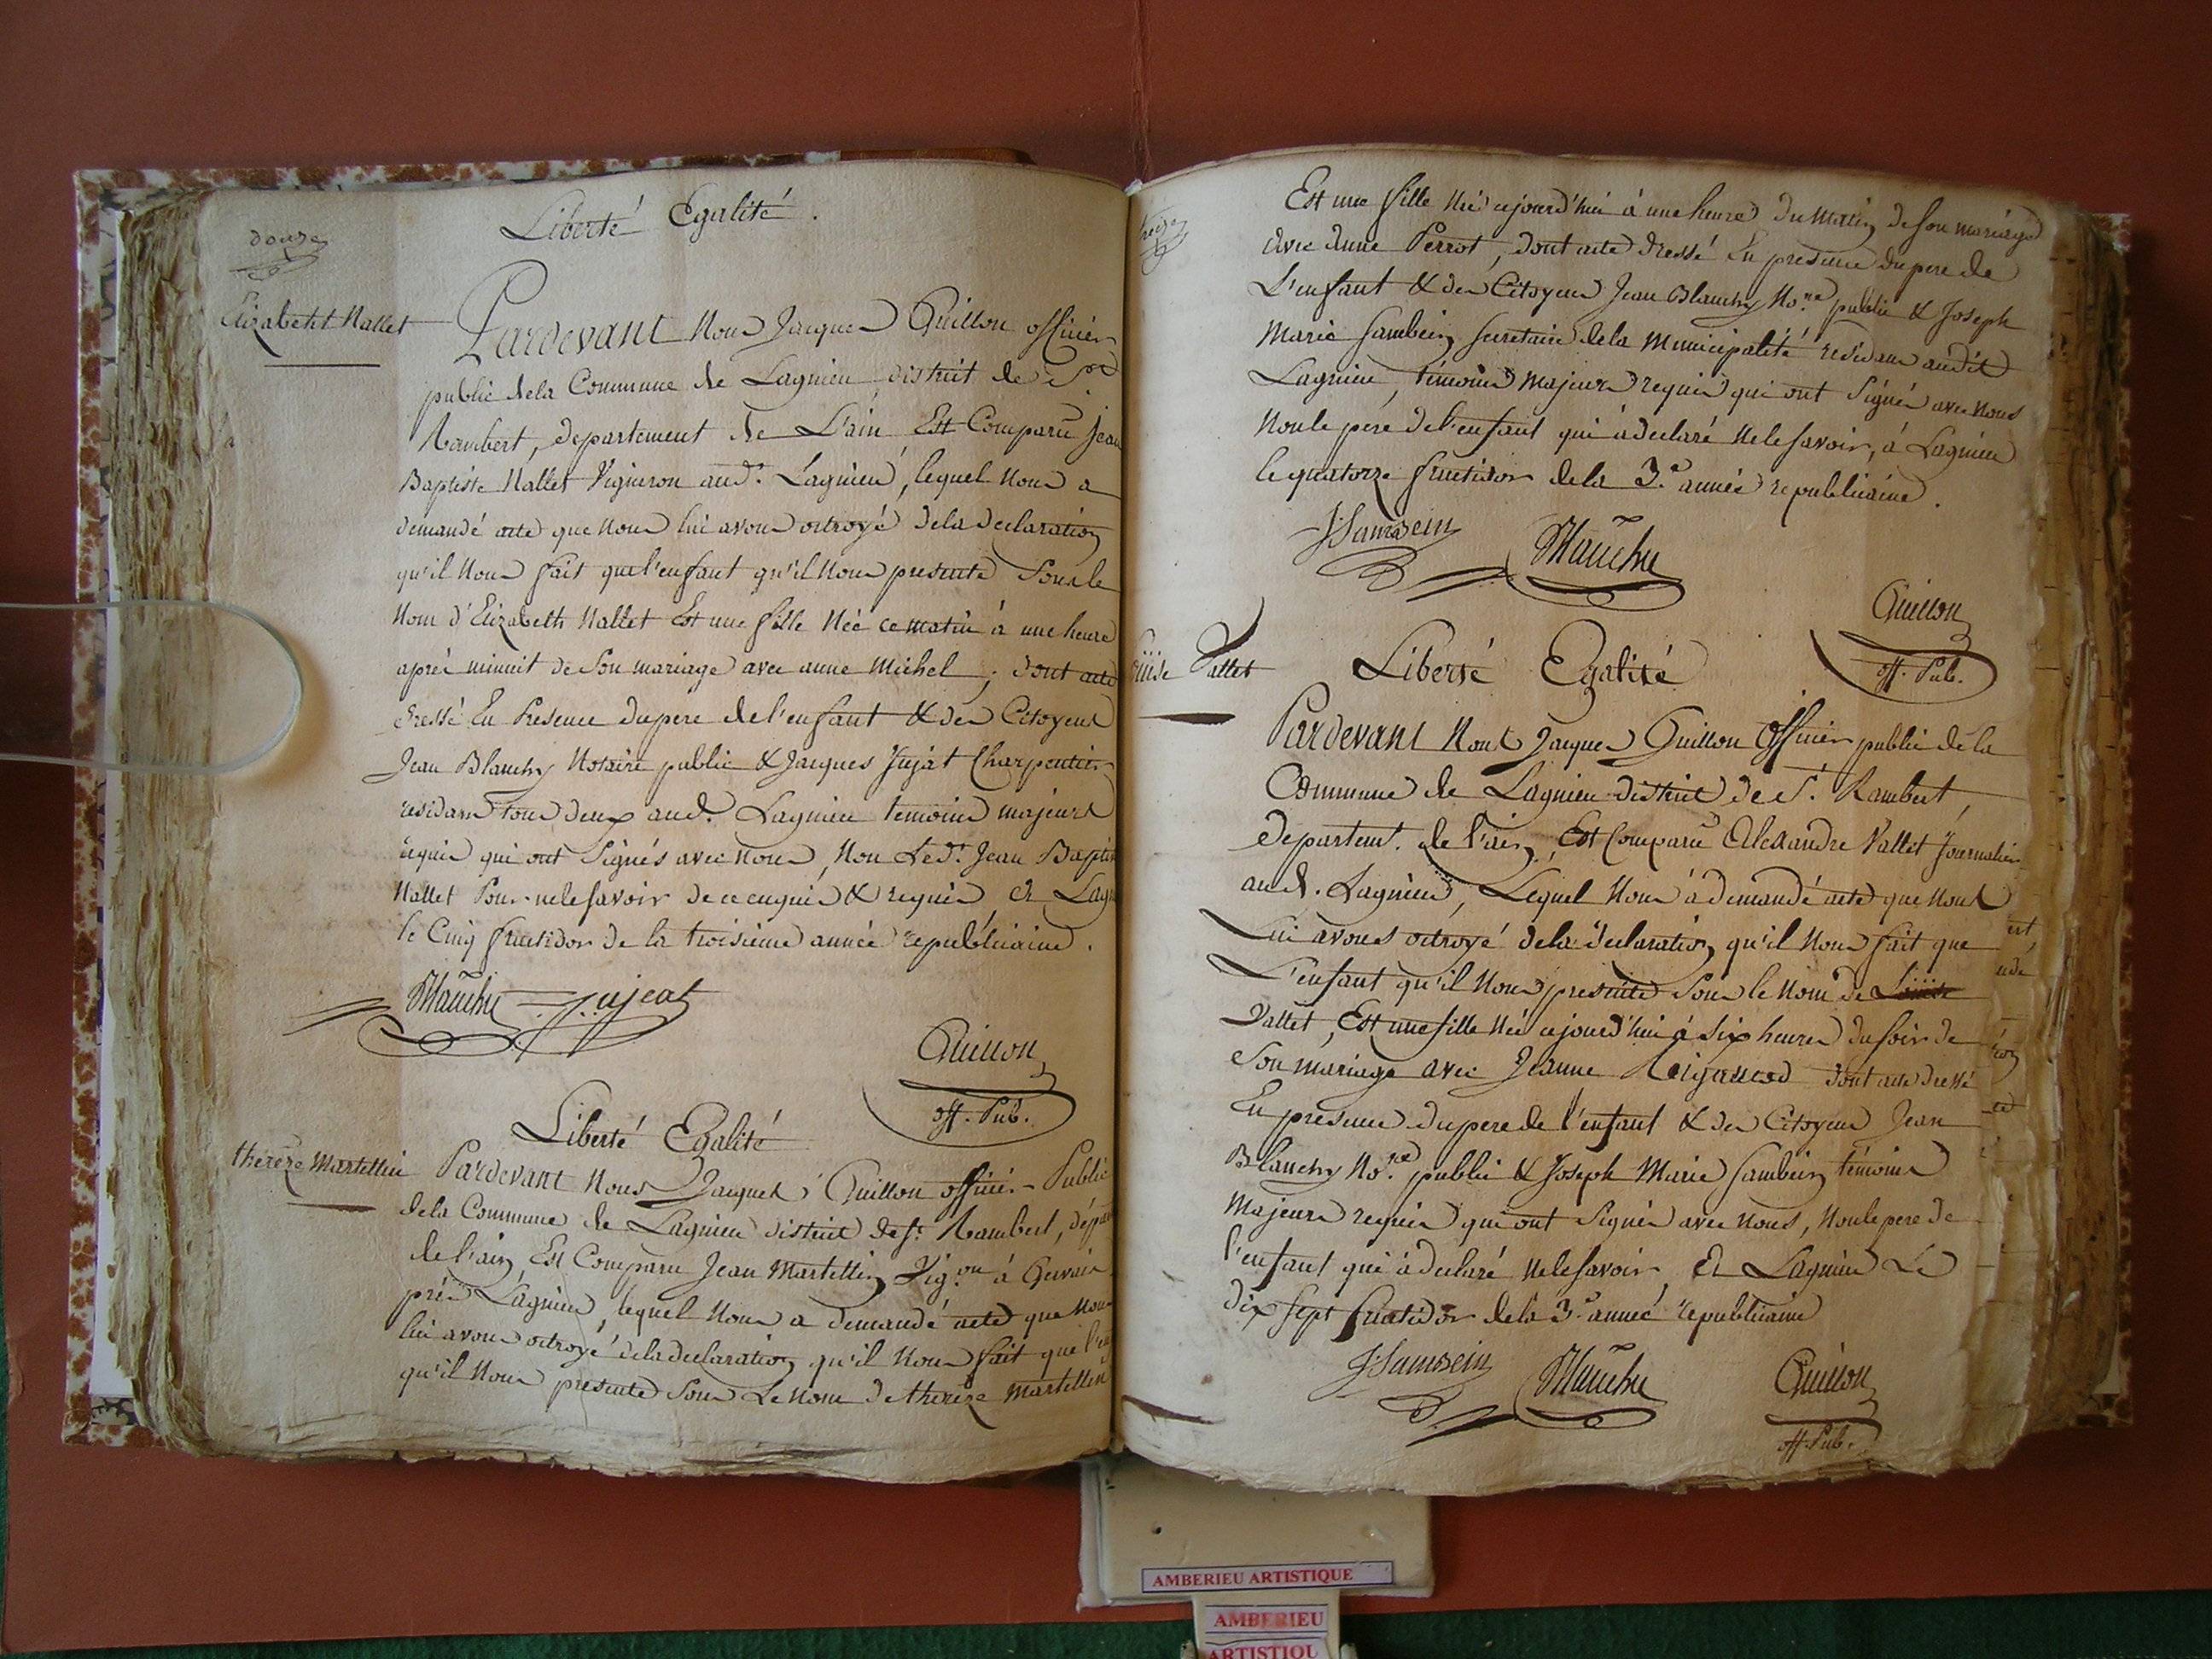 douze
Liberté Egalité.
Elizabetht Nallet
Pardevant Nous Jacques Quillon officier
public dela Commune de Lagnieu district de St
Rambert, departement de L'ain Est Comparu Jean
Baptiste Nallet Vigneron aud. Lagnieu, lequel Nous a
demandé acte que Nous lui avons octroyé dela declaration
qu'il Nous fait que l'enfant qu'il Nous presente Sous le
Nom d'Elizabeth Nallet Est une fille Née ce matin à une heure
aprés minuit de Son mariage avec anne Michel; dont acte
dressé En Presence du pere de l'enfant & des Citoyens
Jean Blanchy Notaire public & Jacques Jujat Charpentier
residans tous deux aud. Lagnieu temoins majeurs
requis qui ont Signés avec Nous, Non Led. Jean Baptis
Nallet Pour ne le savoir de ce enquis & requis à Lagn
le Cinq fructidor de la troisieme année republicaine.
Blanchy J. ujeat
Quillon
off. Pub.
Liberté Egalité
therèze Martellin
Pardevant Nous Jacques Quillon officier Public
dela Commune de Lagnieu district de St. Rambert, dépar
de l'ain, Est Comparu Jean Martellin Vig.on à Gervais
près Lagnieu, lequel Nous a demandé acte que Nous
lui avons octroyé dela declaration qu'il Nous fait que l'en
qu'il Nous presente Sous Le Nom de therèze Martellin
treize
Est une fille Née cejourd'hui à une heure du Matin de son mariage
avec Anne Perrot, dont acte dressé En presence du pere de
L'enfant & des Citoyens Jean Blanchy No.re public & Joseph
Marie Sambein Secretaire dela Municipalité residans audit
Lagnieu, témoins majeurs requis qui ont Signés avec Nous
Non le père de l'enfant qui à declaré ne le savoir, à Lagnieu
le quatorze fructidor dela 3.e année republicaine.
J Sambein Blanchy
Quillon
off. Pub.
Louise Vallet
Liberté Egalité
Pardevant Nous Jacques Quillon Officier public dela
Commune de Lagnieu district de St. Rambert,
departemt. de l'ain, Est Comparu Alexandre Vallet Journalier
aud. Lagnieu, Lequel Nous à demandé acte que Nous
Lui avons octroyé dela declaration qu'il Nous fait que
L'enfant qu'il Nous presente Sous le Nom de Louise
Vallet, Est une fille Née cejourd'hui à Six heures du soir de
Son mariage avec Jeanne dont acte dressé
En presence du pere de l'enfant & des Citoyens Jean
Blanchy No.re public & Joseph Marie Sambein témoins
Majeurs requis qui ont Signés avec Nous, Non le pere de
l'enfant qui à declaré ne le savoir, à Lagnieu Le
dix Sept fructidor dela 3.e année republicaine
J Sambein Blanchy Quillon
off. Pub.
AMBERIEU ARTISTIQUE
AMBERIEU
ARTISTIQU